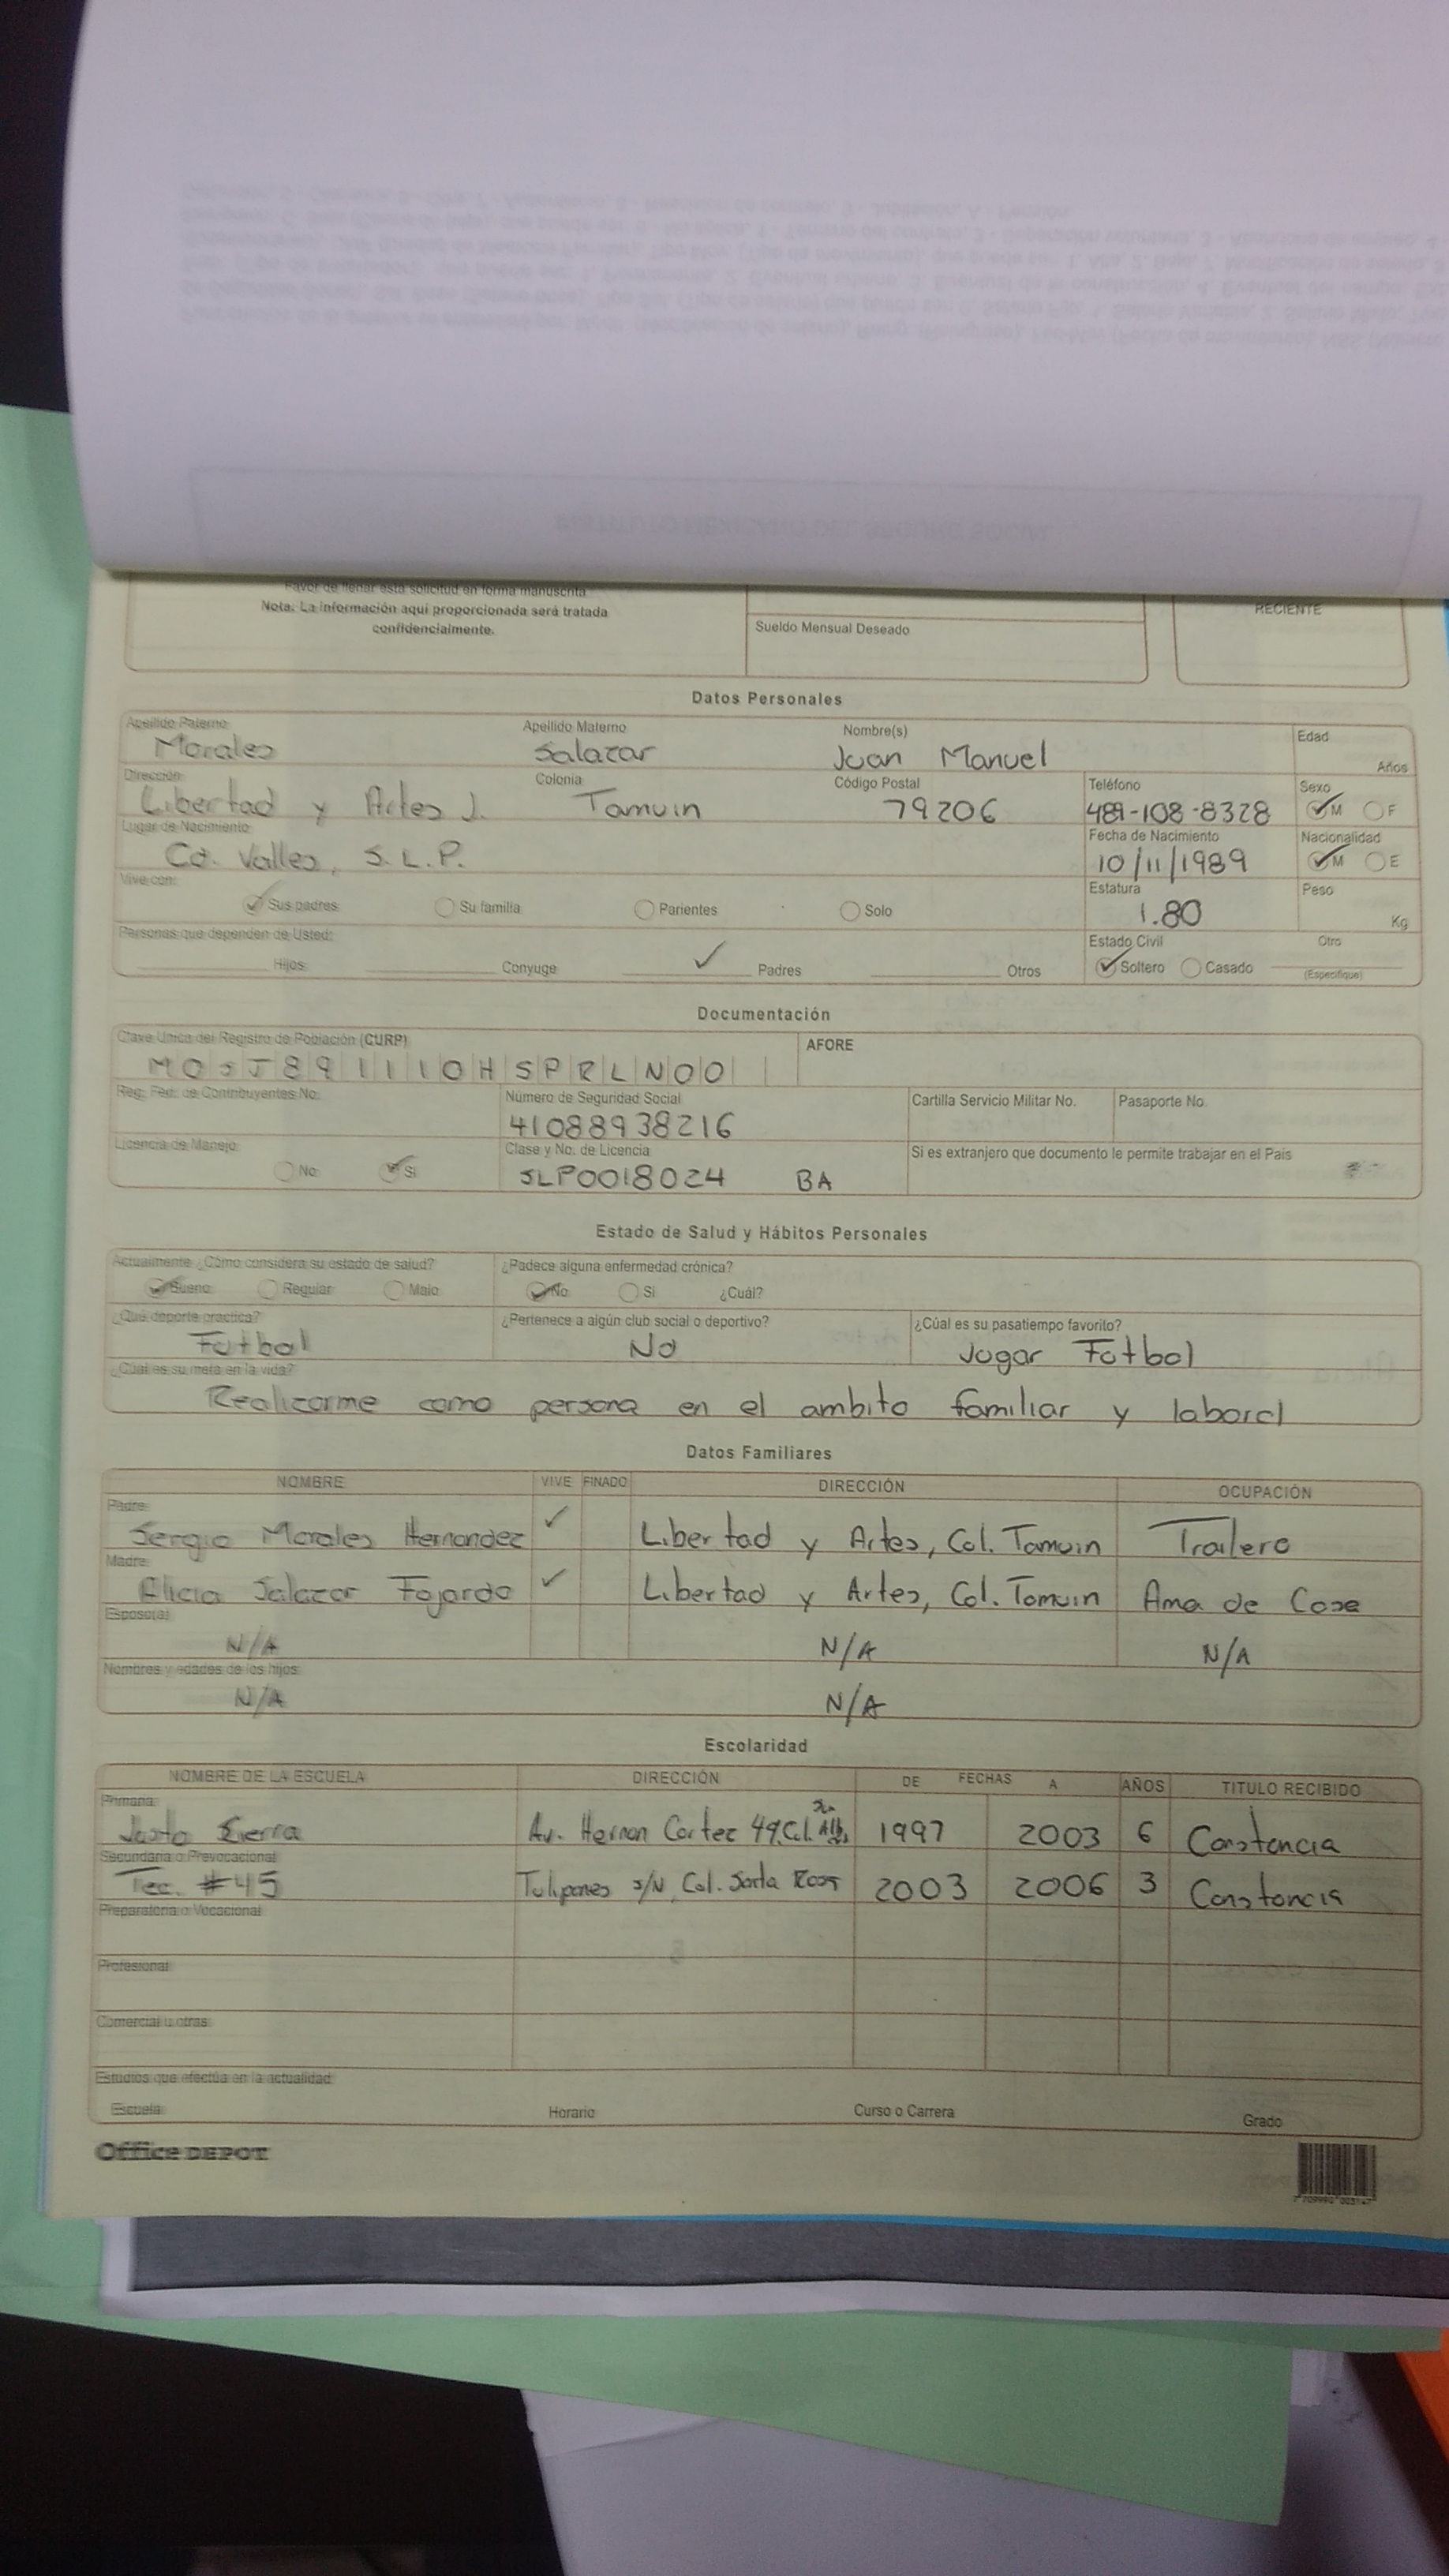 Favor de llenar esta solicitud en forma manuscrita.
Nota: La información aquí proporcionada será tratada
confidencialmente.
Sueldo Mensual Deseado
RECIENTE
Datos Personales
Apellido Paterno Apellido Materno Nombre(s) Edad
Morales Salazar Juan Manuel Años
Dirección Colonia Código Postal Teléfono Sexo
Libertad y Artes J. Tamuin 79206 489-108-8328 M F
Lugar de Nacimiento Fecha de Nacimiento Nacionalidad
Cd. Valles, S.L.P. 10/11/1989 M E
Vive con: Estatura Peso
Sus padres Su familia Parientes Solo 1.80 Kg
Personas que dependen de Usted: Estado Civil Otro
Hijos Conyuge Padres Otros Soltero Casado (Especifique)
Documentación
Clave Unica del Registro de Población (CURP) AFORE
MOSJ891110HSPRLN00
Reg. Fed. de Contribuyentes No. Número de Seguridad Social Cartilla Servicio Militar No. Pasaporte No.
41088938216
Licencia de Manejo Clase y No. de Licencia Si es extranjero que documento le permite trabajar en el País
No Si SLP0018024 BA
Estado de Salud y Hábitos Personales
Actualmente ¿Cómo considera su estado de salud? ¿Padece alguna enfermedad crónica?
Bueno Regular Malo No Si ¿Cuál?
¿Qué deporte practica? ¿Pertenece a algún club social o deportivo? ¿Cúal es su pasatiempo favorito?
Futbol No Jugar Futbol
¿Cúal es su meta en la vida?
Realizarme como persona en el ambito familiar y laboral
Datos Familiares
NOMBRE VIVE FINADO DIRECCIÓN OCUPACIÓN
Padre:
Sergio Morales Hernandez Libertad y Artes, Col. Tamuin Trailero
Madre:
Elicia Salazar Fajardo Libertad y Artes, Col. Tamuin Ama de Casa
Esposo(a)
N/A N/A N/A
Nombres y edades de los hijos
N/A N/A
Escolaridad
NOMBRE DE LA ESCUELA DIRECCIÓN DE FECHAS A AÑOS TITULO RECIBIDO
Primaria:
Justo Sierra Av. Hernan Cortez 49, Col. 1997 2003 6 Constancia
Secundaria o Prevocacional
Tec. #45 Tulipanes s/N, Col. Santa Rosa 2003 2006 3 Constancia
Preparatoria o Vocacional
Profesional
Comercial u otras:
Estudios que efectúa en la actualidad:
Escuela: Horario Curso o Carrera Grado
Office DEPOT